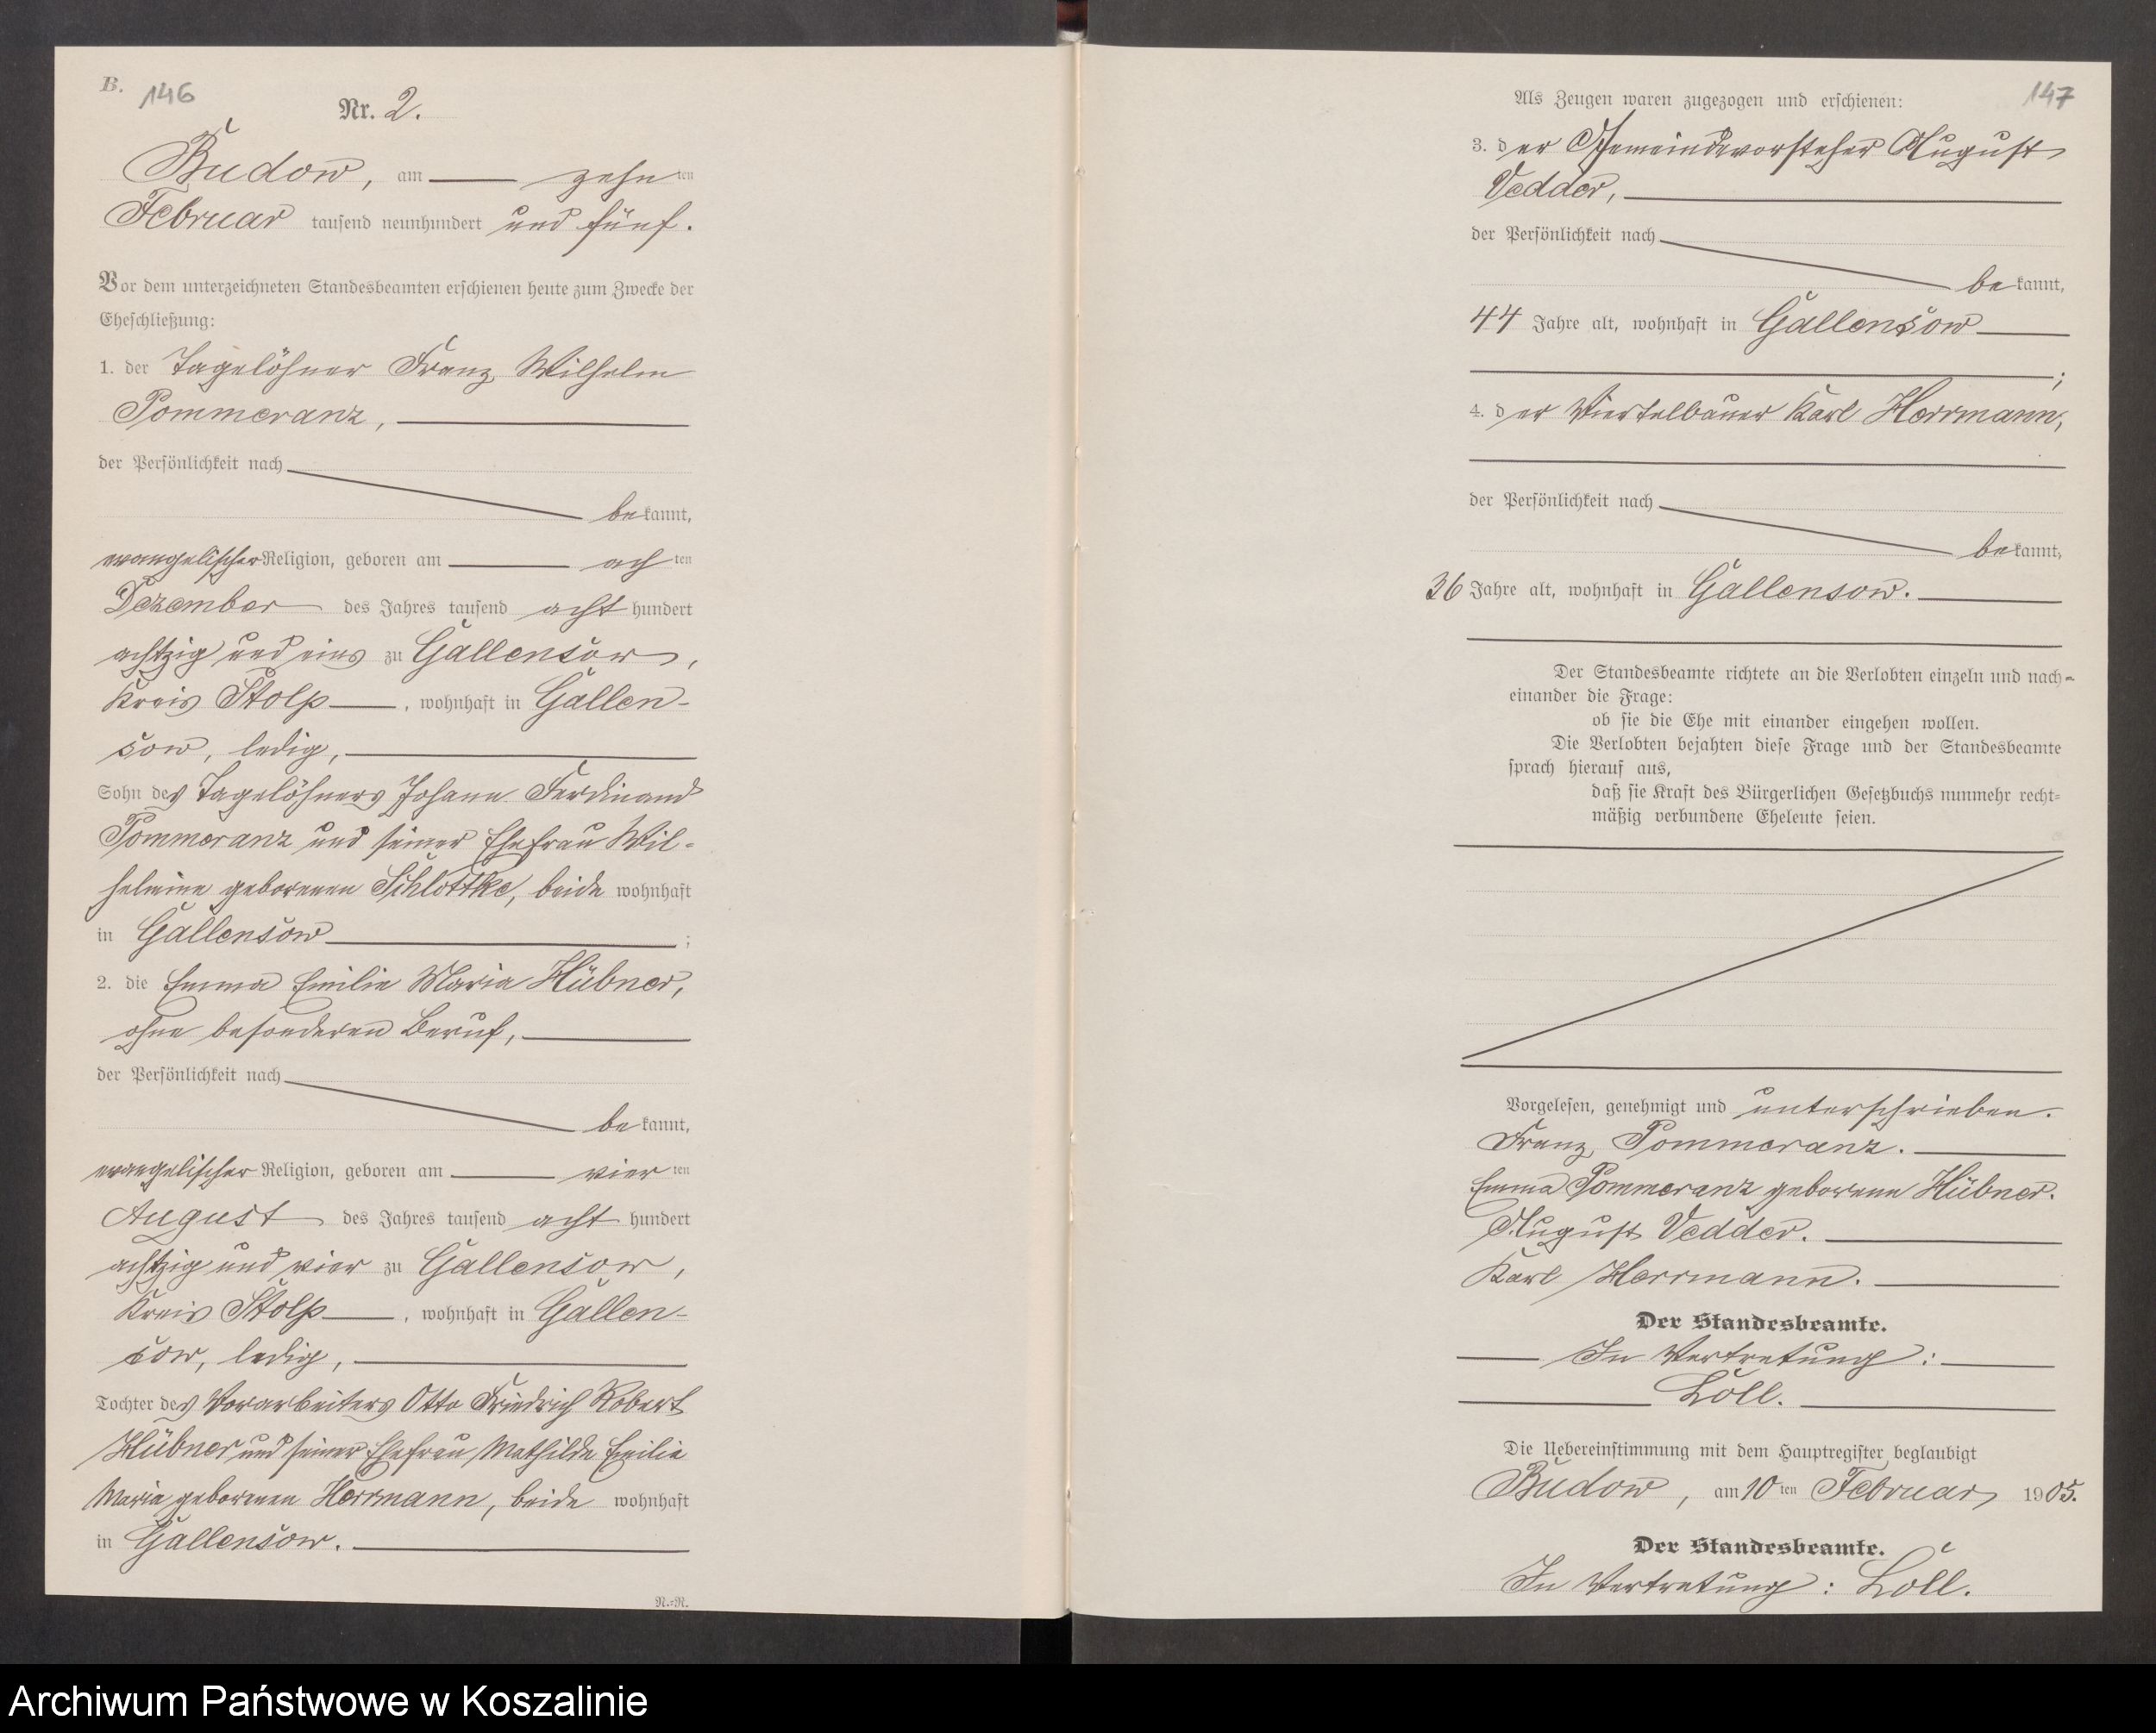 B. 146
Nr. 2.
Budow, am zehnten
Februar tausend neunhundert und fünf.
Vor dem unterzeichneten Standesbeamten erschienen heute zum Zwecke der
Eheschließung:
1. der Tagelöhner Franz Wilhelm
Pommeranz,
der Persönlichkeit nach
bekannt,
evangelischer Religion, geboren am achten
Dezember des Jahres tausend acht hundert
achtzig und eins zu Gallensow,
Kreis Stolp, wohnhaft in Gallen-
sow, ledig,
Sohn des Tagelöhners Johann Ferdinand
Pommeranz und seiner Ehefrau Wil-
helmine geborenen Schlottke, beide wohnhaft
in Gallensow;
2. die Emma Emilie Maria Hübner,
ohne besonderen Beruf,
der Persönlichkeit nach
bekannt,
evangelischer Religion, geboren am vierten
August des Jahres tausend acht hundert
achtzig und vier zu Gallensow,
Kreis Stolp, wohnhaft in Gallen-
sow, ledig,
Tochter des Vorarbeiters Otto Friedrich Robert
Hübner und seiner Ehefrau Mathilde Emilie
Maria geborenen Herrmann, beide wohnhaft
in Gallensow.
N.=R.
147
Als Zeugen waren zugezogen und erschienen:
3. der Gemeindevorsteher August
Vedder,
der Persönlichkeit nach
bekannt,
44 Jahre alt, wohnhaft in Gallensow
;
4. der Viertelbauer Karl Herrmann,
der Persönlichkeit nach
bekannt,
36 Jahre alt, wohnhaft in Gallensow.
Der Standesbeamte richtete an die Verlobten einzeln und nach=
einander die Frage:
ob sie die Ehe mit einander eingehen wollen.
Die Verlobten bejahten diese Frage und der Standesbeamte
sprach hierauf aus,
daß sie Kraft des Bürgerlichen Gesetzbuchs nunmehr recht=
mäßig verbundene Eheleute seien.
Vorgelesen, genehmigt und unterschrieben.
Franz Pommeranz.
Emma Pommeranz geborene Hübner.
August Vedder.
Karl Herrmann.
Der Standesbeamte.
In Vertretung:
Löll.
Die Uebereinstimmung mit dem Hauptregister beglaubigt
Budow, am 10ten Februar 1905.
Der Standesbeamte.
In Vertretung: Löll.
Archiwum Państwowe w Koszalinie